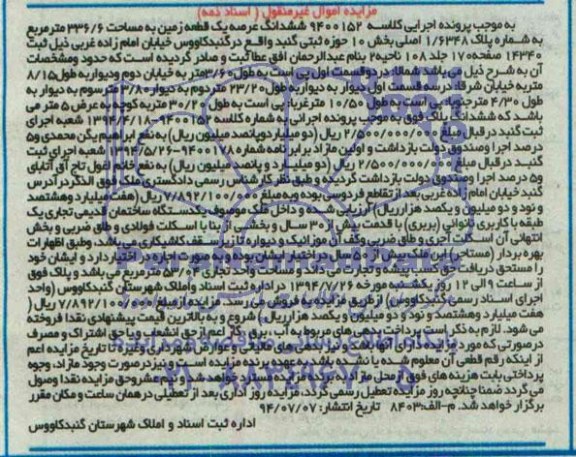 مزایده اموال غیرمنقول ( اسناد ذمه)
به موجب پرونده اجرایی کلاسه ۹۴۰۰۱۵۲ ششدانگ عرصه یک قطعه زمین به مساحت ۳۳۶/۶ مترمربع
به شماره پلاک ۱/۶۳۴۸ اصلی بخش ۱۰ حوزه ثبتی گنبد واقع در گنبدکاووس خیابان امام زاده غربی ذیل ثبت
۱۴۳۴۰ صفحه ۱۷۰ جلد ۱۰۸ ناحیه ۲ بنام عبدالرحمان افق عطا ثبت و صادر گردیده است که حدود ومشخصات
آن به شرح ذیل می باشد شمالا: در دو قسمت اول پی است به طول ۳/۶۰ متر به خیابان دوم ودیوار به طول ۸/۱۵
متر به خیابان شرقا: در سه قسمت اول دیوار به دیوار به طول ۲۳/۲۰ متر دوم به دیوار ۳/۸۰ متر سوم به دیوار به
طول ۴/۳۰ متر جنوبا: پی است به طول ۱۰/۵۰ متر غربا: پی است به طول ۳۰/۲۰ متر به کوچه به عرض ۵ متر می
باشد که ششدانگ پلاک فوق به موجب پرونده اجرائی به شماره کلاسه ۹۴۰۰۱۵۲-۱۳۹۴/۴/۱۸ شعبه اجرای
ثبت گنبد در قبال مبلغ ۲/۵۰۰/۰۰۰/۰۰۰ ریال (دو میلیارد و پانصد میلیون ریال) به نفع ابراهیم یگن محمدی و ۵
درصد اجرا وصندوق دولت بازداشت و اولین مازاد برابر نامه شماره ۹۴۰۰۱۷۸-۱۳۹۴/۵/۲۶ شعبه اجرای ثبت
گنبد در قبال مبلغ ۲/۵۰۰/۰۰۰/۰۰۰ ریال (دو میلیارد و پانصد میلیون ریال) به نفع خانم اغول تاج آق آتابای
و ۵ درصد اجرا وصندوق دولت بازداشت گردیده و طبق نظر کارشناس رسمی دادگستری ملک فوق الذکر در آدرس
گنبد خیابان امام زاده غربی بعد از تقاطع فردوسی بوده و به مبلغ ۷/۸۹۲/۱۰۰/۰۰۰ ریال (هفت میلیارد وهشتصد
و نود و دو میلیون و یکصد هزار ریال) ارزیابی شده و داخل ملک موصوف یکدستگاه ساختمان قدیمی تجاری یک
طبقه با کاربری نانوائی (بربری) با قدمت بیش از ۳۰ سال و بخشی از بنا با اسکلت فولادی و طاق ضربی و بخش
انتهائی آن اسکلت آجری و طاق ضربی وکف آن موزائیک و دیواره تا زیر سقف کاشیکاری می باشد، وطبق اظهارات
بهره بردار (مستاجر) این ملک بیش از ۵۰ سال در اختیار ایشان بوده و به صورت اجاره در اختیار دارد و ایشان خود
را مستحق دریافت حق کسب پیشه و تجارت می داند و مساحت واحد تجاری ۵۳/۰۴ مترمربع می باشد و پلاک فوق
از ساعت ۹ الی ۱۲ روز یکشنبه مورخه ۱۳۹۴/۷/۲۶ در اداره ثبت اسناد واملاک شهرستان گنبدکاووس (واحد
اجرای اسناد رسمی گنبدکاووس) از طریق مزایده به فروش می رسد. مزایده از مبلغ ۷/۸۹۲/۱۰۰/۰۰۰ ریال (
هفت میلیارد وهشتصد و نود و دو میلیون و یکصد هزار ریال) شروع و به بالاترین قیمت پیشنهادی نقدا فروخته
می شود. لازم به ذکر است پرداخت بدهی های مربوط به آب، برق، گاز اعم از حق انشعاب و یا حق اشتراک و مصرف
درصورتی که مورد مزایده دارای آنها باشد و نیز بدهی های مالیاتی و عوارض شهرداری وغیره تا تاریخ مزایده اعم
از اینکه رقم قطعی آن معلوم شده یا نشده باشد به عهده برنده مزایده است و نیز در صورت وجود مازاد، وجوه
پرداختی بابت هزینه های فوق از محل مازاد به برنده مزایده مسترد خواهد شد و نیم عشر وحق مزایده نقدا وصول
می گردد ضمنا چنانچه روز مزایده تعطیل رسمی گردد، مزایده روز اداری بعد از تعطیلی در همان ساعت و مکان مقرر
برگزار خواهد شد. م-الف:۸۴۰۳ تاریخ انتشار: ۹۴/۰۷/۰۷
اداره ثبت اسناد و املاک شهرستان گنبدکاووس